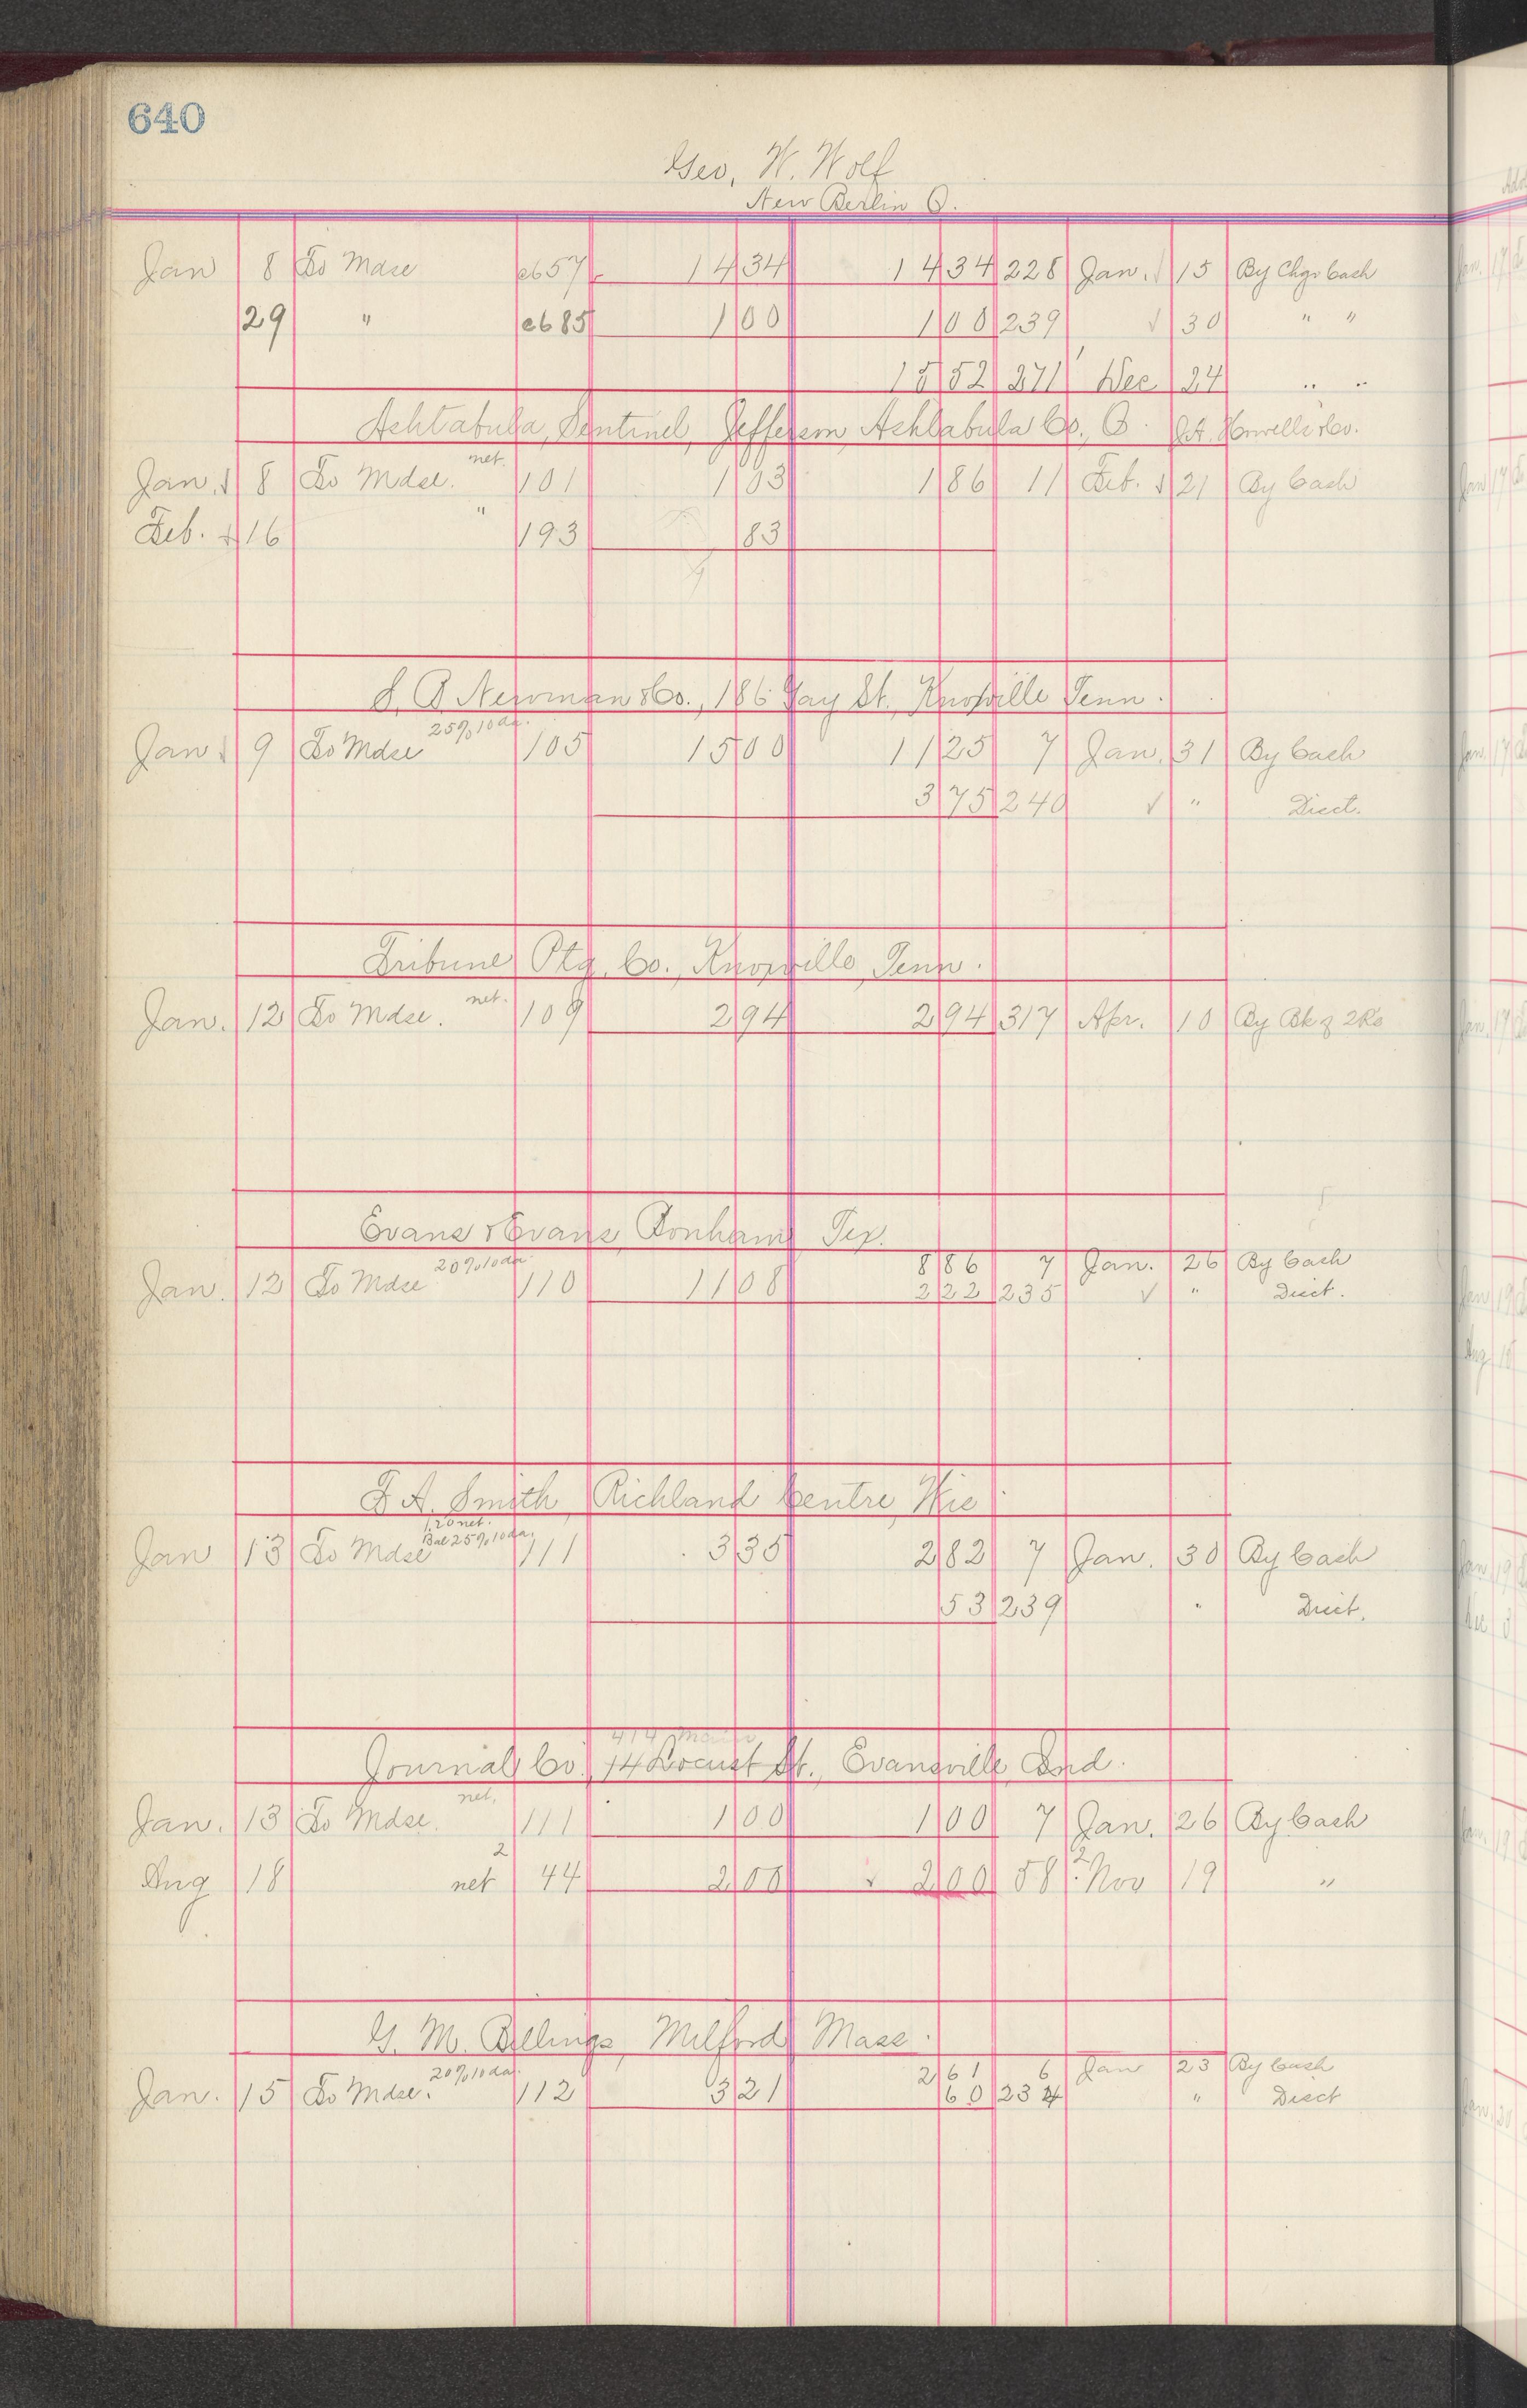 640
Geo. W. Wolf
New Berlin O.
Jan 8 To Mdse cb657 14 34 14 34 228 Jan. 15 By Chgo Cash
29 " cb685 1 00 1 00 239 √ 30 " "
15 52 271 Dec 24 " "
Ashtabula Sentinel, Jefferson, Ashtabula Co., O. J.A. Howells & Co.
Jan. 8 To Mdse. net. 101 1 03 1 86 11 Feb. 21 By Cash
Feb. 16 " 193 83
S. B. Newman & Co., 186 Gay St., Knoxville Tenn.
Jan 9 To Mdse 25% 10 da. 105 15 00 11 25 7 Jan. 31 By Cash
3 75 240 √ " Disct.
Tribune Ptg. Co., Knoxville, Tenn.
Jan. 12 To Mdse. net. 109 2 94 2 94 317 Apr. 10 By Bk
Evans & Evans, Bonham, Tex.
8 86 7 Jan. 26 By Cash
Jan. 12 To Mdse 20% 10 da 110 11 08 2 22 235 √ " Disct.
F. A. Smith, Richland Centre, Wis.
1.20 net.
Jan 13 To Mdse Bal 25% 10 da. 111 3 35 2 82 7 Jan. 30 By Cash
53 239 " Disct.
414 Main
Journal Co., 14 Locust St., Evansville, Ind.
Jan. 13 To Mdse. net. 111 1 00 1 00 7 Jan. 26 By Cash
2 2
Aug 18 net 44 2 00 2 00 58 Nov 19 "
G. M. Billings, Milford Mass.
2 61 6 Jan 23 By Cash
Jan. 15 To Mdse. 20% 10 da. 112 3 21 60 234 " Disct